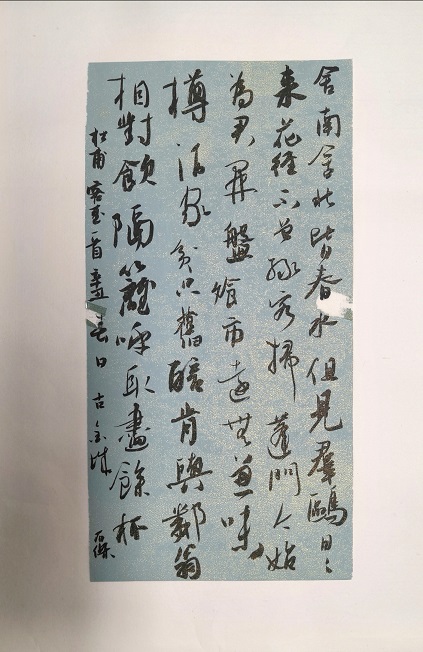 舍南舍北皆春水但見羣鷗日〻
來花徑不曾緣客掃蓬門今始
為君開盤飧市遠無兼味
樽酒家貧只舊醅肯與鄰翁
相對飲隔籬呼取盡餘杯
杜甫客至一首 春日 古金城